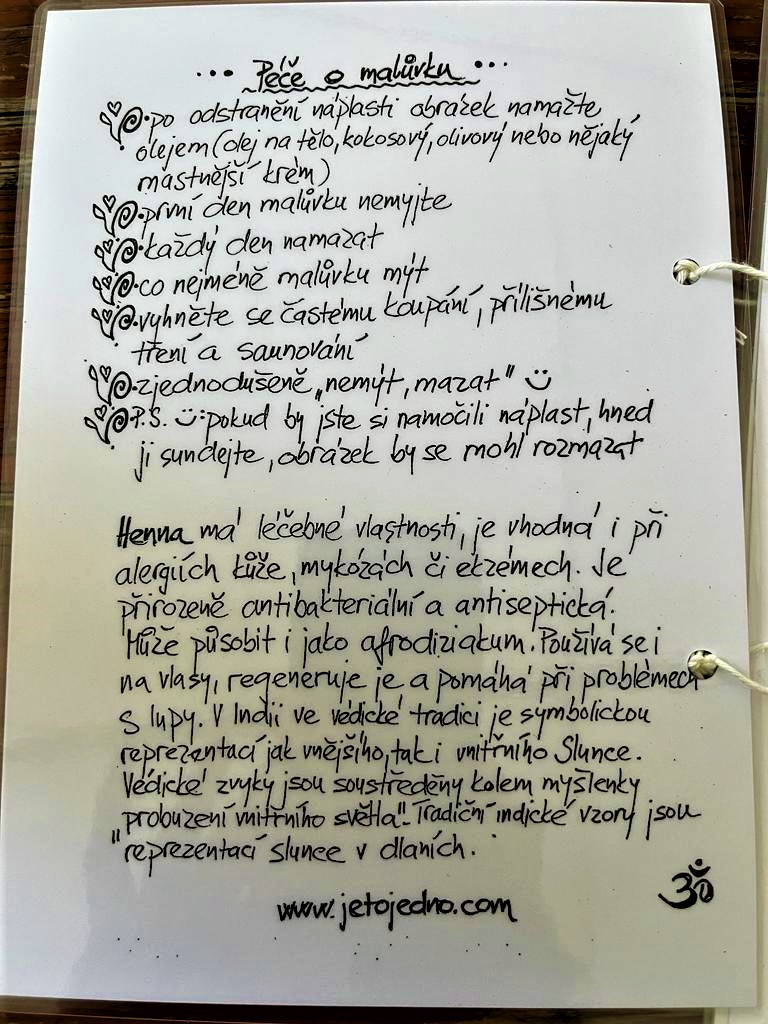 ... Péče o malůvku ...
po odstranění náplasti obrázek namažte
olejem (olej na tělo, kokosový, olivový nebo nějaký
mastnější krém)
první den malůvku nemyjte
každý den namazat
co nejméně malůvku mýt
vyhněte se častému koupání, přílišnému
tření a saunování
zjednodušeně „nemýt, mazat" :)
P.S. :) : pokud by jste si namočili náplast, hned
ji sundejte, obrázek by se mohl rozmazat
Henna má léčebné vlastnosti, je vhodná i při
alergiích kůže, mykózách či ekzémech. Je
přirozeně antibakteriální a antiseptická.
Může působit i jako afrodiziakum. Používá se i
na vlasy, regeneruje je a pomáhá při problémech
s lupy. V Indii ve védické tradici je symbolickou
reprezentací jak vnějšího, tak i vnitřního Slunce.
Védické zvyky jsou soustředěny kolem myšlenky
„probuzení vnitřního světla". Tradiční indické vzory jsou
reprezentací slunce v dlaních.
ॐ
www.jetojedno.com